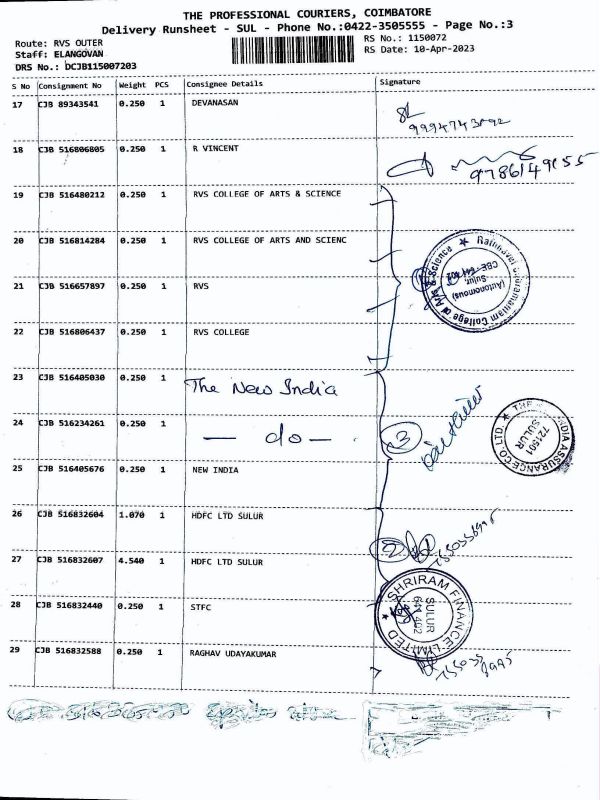 THE PROFESSIONAL COURIERS, COIMBATORE
Delivery Runsheet - SUL - Phone No.:0422-3505555 - Page No.:3
Route: RVS OUTER
RS No.: 1150072
Staff: ELANGOVAN
RS Date: 10-Apr-2023
DRS No.: DCJB115007203
S No Consignment No Weight PCS Consignee Details Signature
17 CJB 89343541 0.250 1 DEVANASAN
18 CJB 516806805 0.250 1 R VINCENT
9786149055
19 CJB 516480212 0.250 1 RVS COLLEGE OF ARTS & SCIENCE
20 CJB 516814284 0.250 1 RVS COLLEGE OF ARTS AND SCIENC
21 CJB 516657897 0.250 1 RVS
22 CJB 516806437 0.250 1 RVS COLLEGE
College of Arts & Science
(Autonomous)
Sulur,
23 CJB 516405030 0.250 1 The New India
24 CJB 516234261 0.250 1 — do —
3
25 CJB 516405676 0.250 1 NEW INDIA
INDIA ASSURANCE CO. LTD.
721501
SULUR
26 CJB 516832604 1.070 1 HDFC LTD SULUR
27 CJB 516832607 4.540 1 HDFC LTD SULUR
2
28 CJB 516832440 0.250 1 STFC
SHRIRAM FINANCE LIMITED
SULUR
641 402
29 CJB 516832588 0.250 1 RAGHAV UDAYAKUMAR